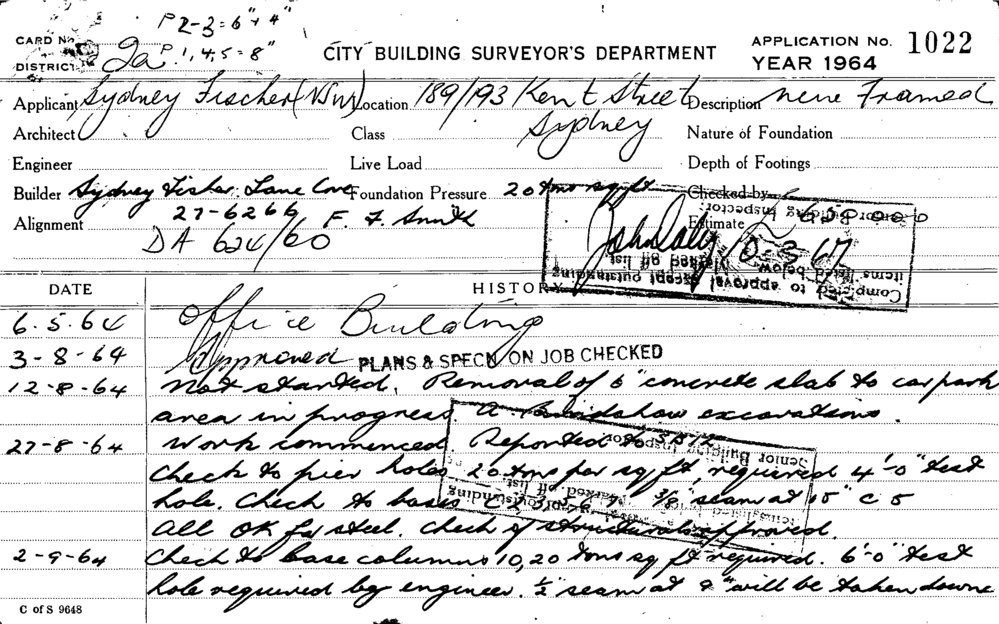 P 2-3 = 6" + 4"
P 1, 4, 5 = 8"
CARD No.
DISTRICT 2a
CITY BUILDING SURVEYOR'S DEPARTMENT
APPLICATION No. 1022
YEAR 1964
Applicant Sydney Fischer (NSW) Location 189/193 Kent Street Description new Framed
Architect Class Sydney Nature of Foundation
Engineer Live Load Depth of Footings
Builder Sydney Fisher Lane Cove Foundation Pressure 20 tons sq ft Checked by
27-6266 F. F. Smith
Alignment Estimate £
DA 624/60
John Daly 10-3-67
Senior Building Inspector
Completed to approval except outstanding
items listed below Marked off list
DATE HISTORY
6.5.64 Office Building
3-8-64 Approved PLANS & SPECN ON JOB CHECKED
12-8-64 Not started. Removal of 6" concrete slab to carpark
area in progress. A excavations.
27-8-64 Work commenced Reported to
Senior Building Inspector
Check to pier holes 20 tons per sq ft, required 4'-0" test
hole. Check to bases 3/8" seam at 15" C 5
All OK for steel. Check of structurals approved.
2-9-64 Check to base columns 10, 20 tons sq ft required. 6'-0" test
hole required by engineer. ½" seam at 9" will be taken down
C of S 9648